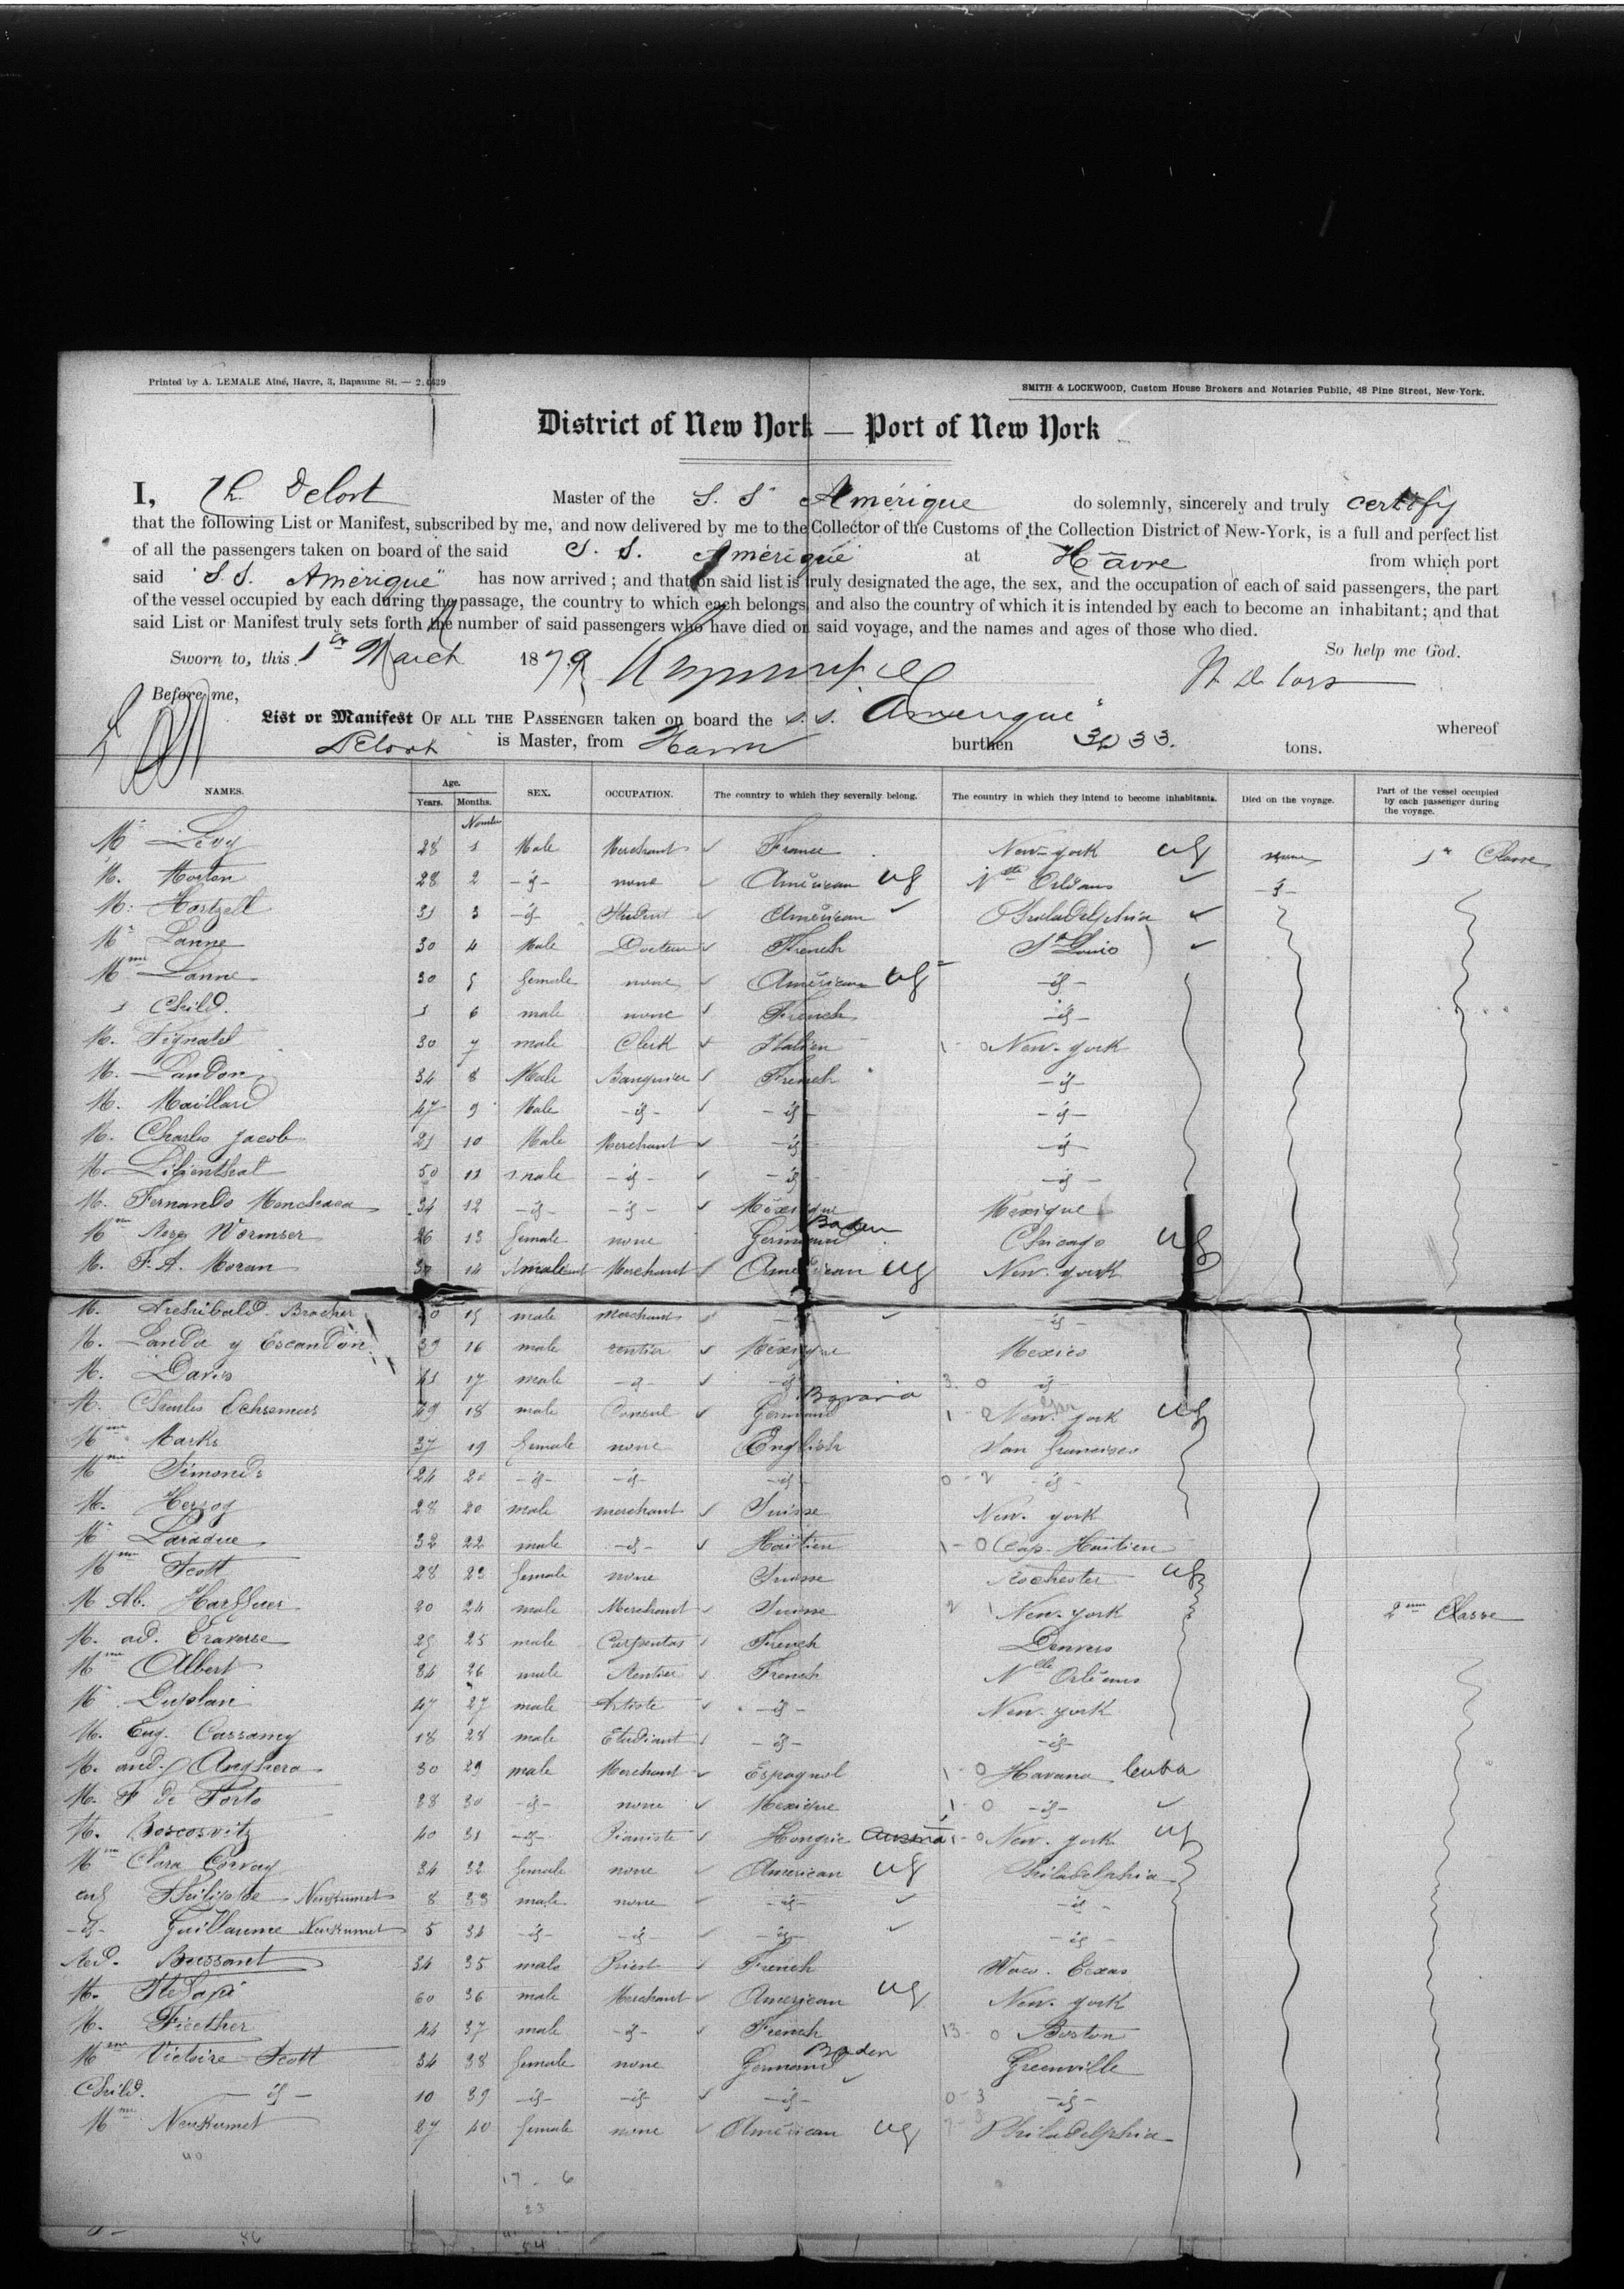 Printed by A. LEMALE Aîné, Havre, 3, Bapaume St. — 2.
SMITH & LOCKWOOD, Custom House Brokers and Notaries Public, 48 Pine Street, New-York.
District of New York — Port of New York
I, Th. Delort Master of the S. S. Amérique do solemnly, sincerely and truly certify
that the following List or Manifest, subscribed by me, and now delivered by me to the Collector of the Customs of the Collection District of New-York, is a full and perfect list
of all the passengers taken on board of the said S. S. Amérique at Havre from which port
said "S. S. Amérique" has now arrived; and that on said list is truly designated the age, the sex, and the occupation of each of said passengers, the part
of the vessel occupied by each during the passage, the country to which each belongs, and also the country of which it is intended by each to become an inhabitant; and that
said List or Manifest truly sets forth the number of said passengers who have died on said voyage, and the names and ages of those who died.
Sworn to, this 1er March 1879 So help me God.
Before me,
List or Manifest OF ALL THE PASSENGER taken on board the s.s. Amerique" whereof
Delort is Master, from Havre burthen 3033. tons.
NAMES. Age. Years. Months. SEX. OCCUPATION. The country to which they severally belong. The country in which they intend to become inhabitants. Died on the voyage. Part of the vessel occupied by each passenger during the voyage.
Number
Mr Lévy 28 1 Male Merchant France New-york none 1re Classe
M. Morton 28 2 -id- none Américan Nlle Orléans -id-
M. Hartzell 31 3 -id- Student Américan Philadelphia
Mr Lanne 30 4 Male Docteur French St Louis
Mme Lanne 30 5 female none Américan -id-
1 Child. 1 6 male none French -id-
M. Pignatel 30 7 male Clerk Italien 1 - 0 New-york
M. Landon 34 8 Male Banquier French -id-
M. Maillard 47 9 Male -id- -id- -id-
M. Charles Jacob 21 10 Male Merchant -id- -id-
M. Lilienthal 50 11 male -id- -id- -id-
M. Fernando Menchaca 34 12 -id- -id- Mexique Mexique
Mme Wormser 26 13 female none Germand Baden Chicago
M. F. A. Moran 14 male Merchant Américan New-york
M. Archibald Bracher 15 male merchant -id-
M. Landa y Escandon 39 16 male rentier Méxique Mexico
M. Davis 41 17 male -id- -id- 3 0 id
M. Charles 49 18 male Consul Germand Bavaria 1 - 0 New-york
Mme Marks 37 19 female none English San Francisco
Mme Simonds 24 20 -id- -id- -id- 0 - 2 -id-
M. Herzog 28 20 male merchant Suisse New-york
Mr Laraque 32 22 male -id- Haïtien 1 - 0 Cap-Haïtien
Mme Scott 28 23 female none Suisse Rochester
M. Ab. 20 24 male Merchant Suisse New-york 2eme Classe
M. ad. Traverse 25 25 male Carpentar French Denvers
Mme Albert 34 26 male Rentier French Nlle Orléans
M. Duplan 47 27 male Artiste -id- New-york
M. Eug. 18 28 male Etudiant -id- -id-
M. and. Anghera 30 29 male Merchant Espagnol 1 - 0 Havana Cuba
M. F de Porto 28 30 -id- none Mexique 1 - 0 -id-
M. Boscovitz 40 31 -id- Pianiste Hongrie Austria 1 - 0 New-york
Mme Clara 34 32 female none American Philadelphia
enf Philippe Neukumet 8 33 male none -id- -id-
-id- Guillaume Neukumet 5 34 -id- -id- -id- -id-
Red. Bussant 34 35 male Priest French Waco. Texas
M. 60 36 male Merchant American New-york
M. 44 37 male -id- French 13 - 0 Boston
Mme Victoire Scott 34 38 female none Germand Baden Greenville
Child. -id- 10 39 -id- -id- -id- 0 - 3 -id-
Mme Neukumet 27 40 female none Américan Philadelphia
40
17 - 6
23
86
54